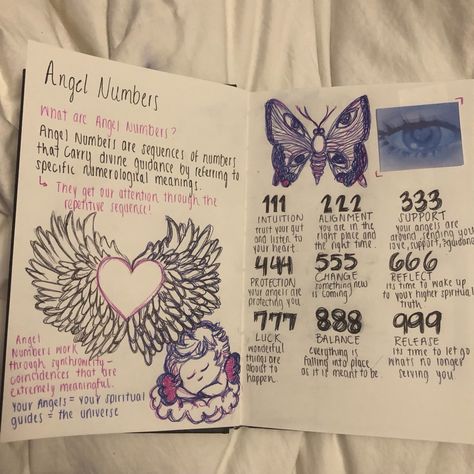 Angel Numbers
What are Angel Numbers?
Angel Numbers are sequences of numbers
that carry divine guidance by referring to
specific numerological meanings.
↳ They get our attention through the
repetitive sequence!
Angel
Numbers work
through synchronicity –
coincidences that are
extremely meaningful.
Your Angels = your spiritual
guides = the universe
111
INTUITION
trust your gut
and listen to
your heart.
222
ALIGNMENT
you are in the
right place and
the right time.
333
SUPPORT
your angels are
around, sending you
love, support, ? guidance
444
PROTECTION
your angels are
protecting you
555
CHANGE
something new
is coming!
666
REFLECT
its time to wake up
to your higher spiritual
truth
777
LUCK
wonderful
things are
about to
happen.
888
BALANCE
everything is
falling into place
as it is meant to be
999
RELEASE
its time to let go
whats no longer
serving you